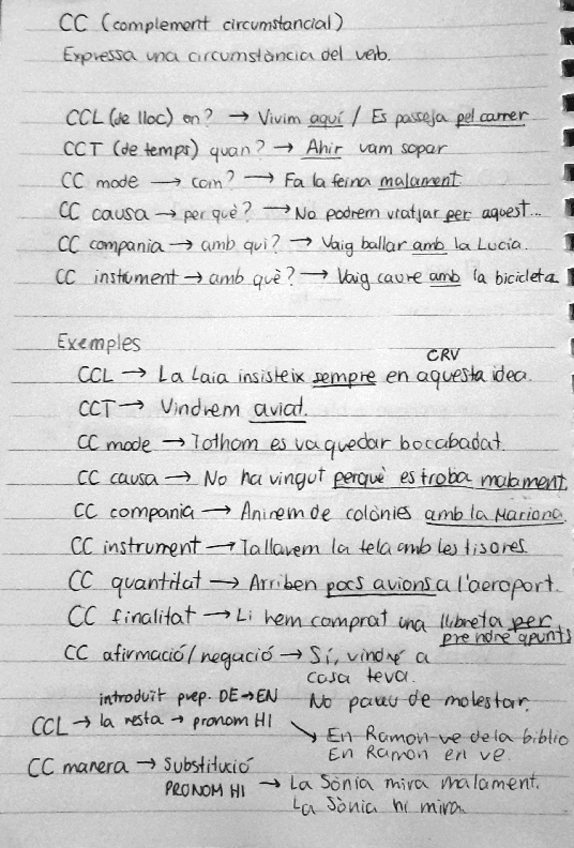 CC (complement circumstancial)
Expressa una circumstància del verb.
CCL (de lloc) on? → Vivim aquí / Es passeja pel carrer
CCT (de temps) quan? → Ahir vam sopar
CC mode → com? → Fa la feina malament
CC causa → per què? → No podrem viatjar per aquest...
CC compania → amb qui? → Vaig ballar amb la Lucía.
CC instrument → amb què? → Vaig caure amb la bicicleta.
Exemples
CRV
CCL → La Laia insisteix sempre en aquesta idea.
CCT → Vindrem aviat.
CC mode → Tothom es va quedar bocabadat.
CC causa → No ha vingut perquè es troba malament.
CC compania → Anirem de colònies amb la Mariona.
CC instrument → Tallavem la tela amb les tisores.
CC quantitat → Arriben pocs avions a l'aeroport.
CC finalitat → Li hem comprat una llibreta per
prendre apunts
CC afirmació/negació → Sí, vindré a
casa teva.
No pareu de molestar.
introduït prep. DE → EN
CCL → la resta → pronom HI
↘ En Ramon ve de la biblio
En Ramon en ve.
CC manera → Substitució
PRONOM HI → La Sònia mira malament.
La Sònia hi mira.